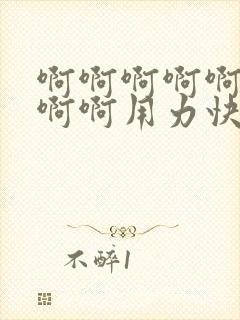 啊啊啊啊啊
啊啊用力快
不醉1